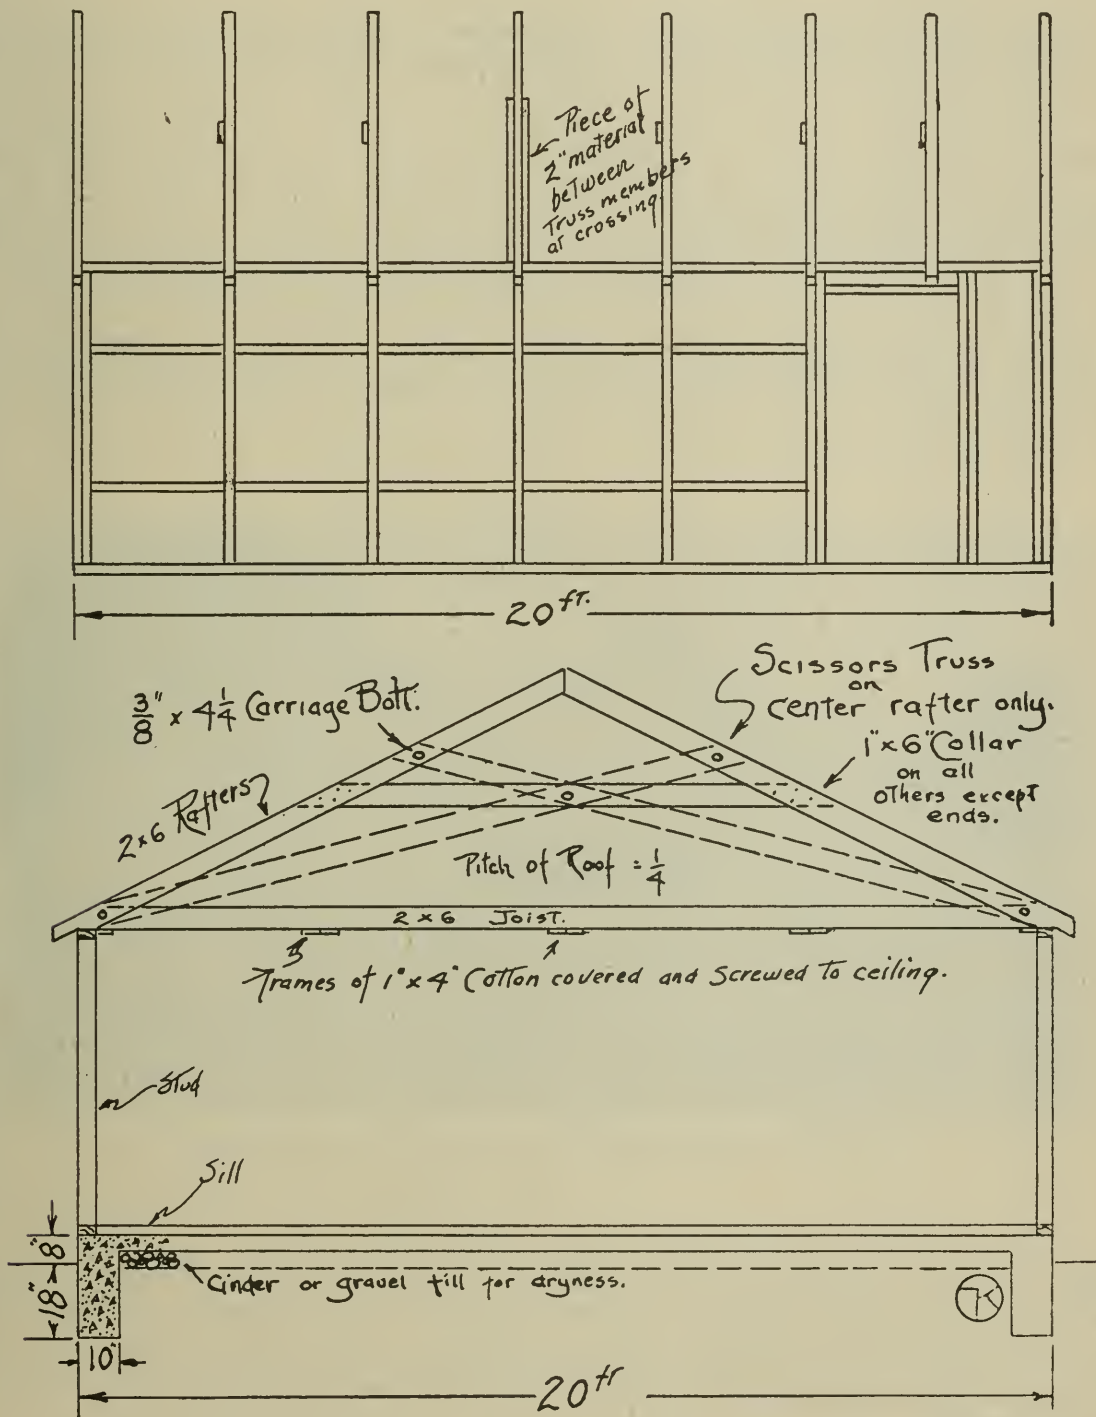 Piece of
2" material
between
Truss members
at crossing
20 ft.
3/8" x 4 1/4 Carriage Bolt.
Scissors Truss
on
center rafter only.
1"x6" Collar
on all
others except
ends.
2x6 Rafters
Pitch of Roof = 1/4
2 x 6 Joist.
Frames of 1" x 4" Cotton covered and Screwed to ceiling.
Stud
Sill
8"
18"
Cinder or gravel fill for dryness.
10"
20 ft